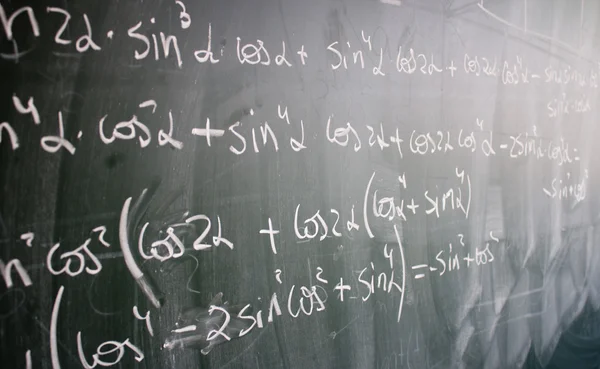 n 2α · sin³α cosα + sin⁴α cos2α + cos2α cos⁴ -
n⁴α · cos²α + sin⁴α cos2α + cos2α cos⁴α - 2sin²α · cosα =
- sin² + cos²
n² cos² (cos2α + cos2α (cos⁴ + sin⁴)
(cos⁴ - 2sin²cos² + sin⁴) = - sin² + cos²